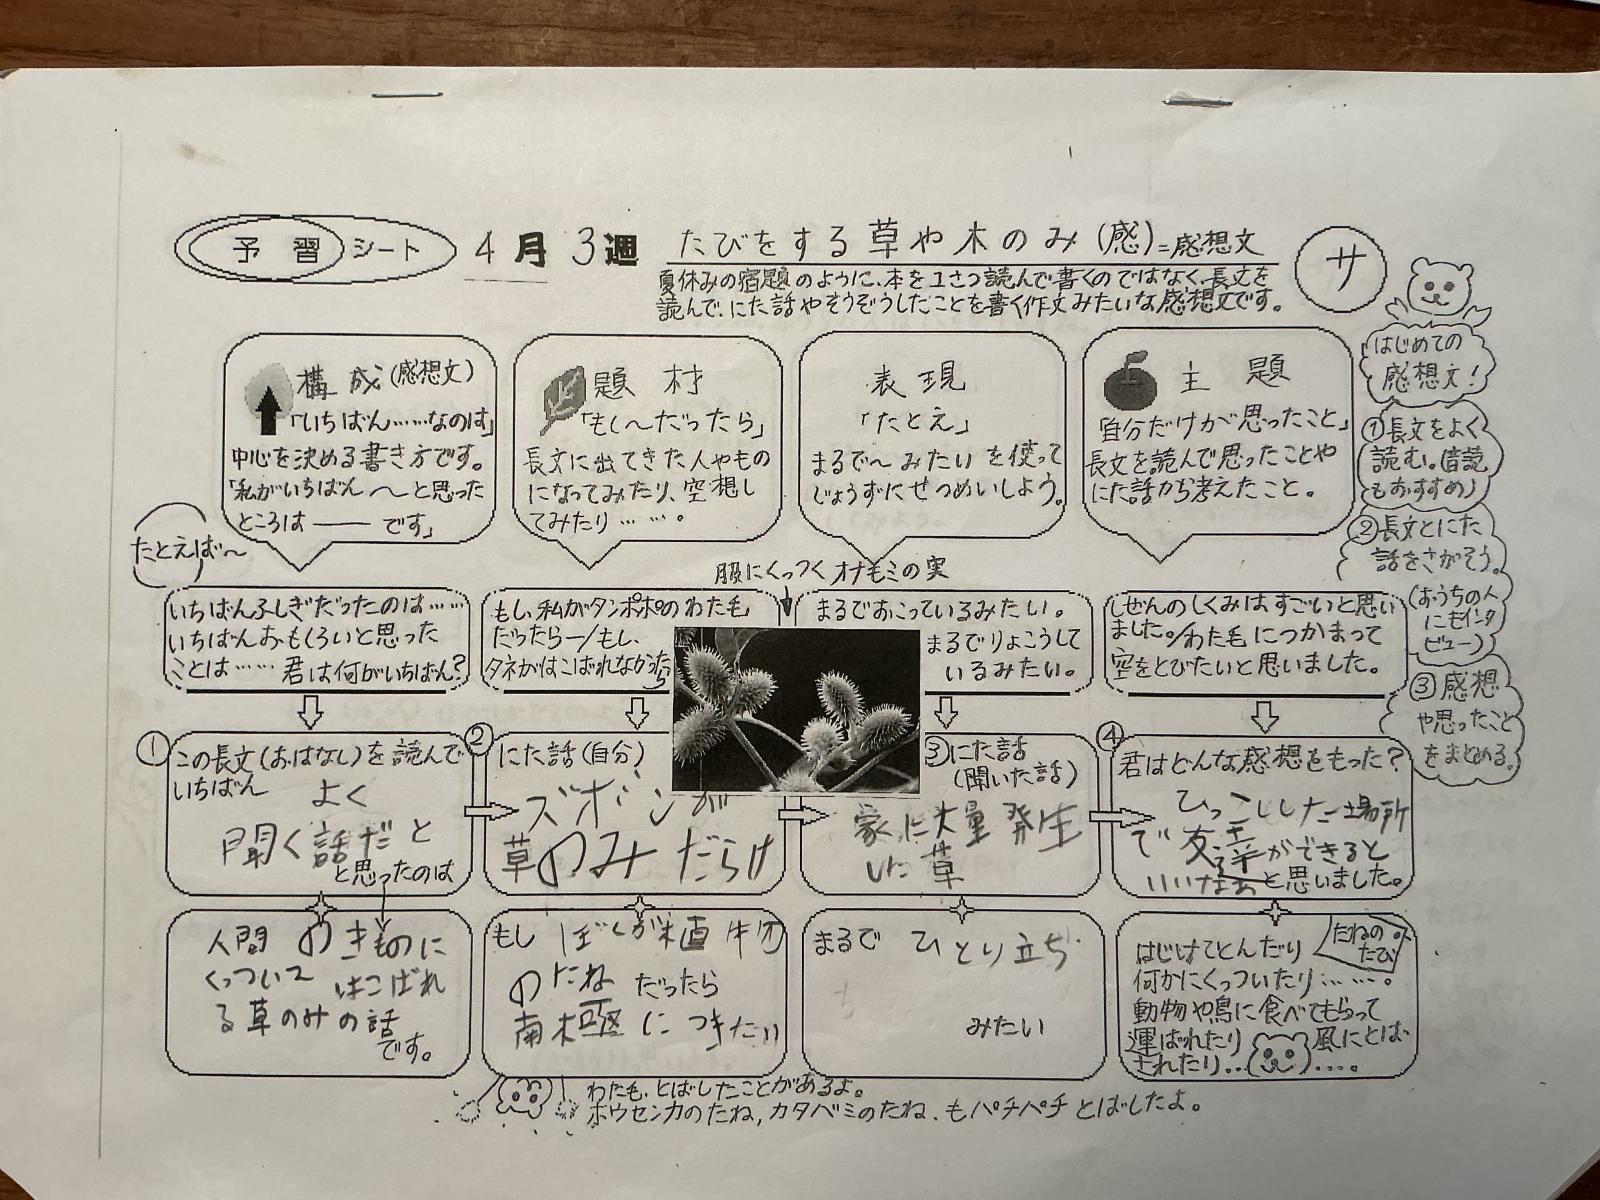 予習シート
4月3週
たびをする草や木のみ(感)=感想文
サ
夏休みの宿題のように、本を1さつ読んで書くのではなく、長文を
読んで、にた話やそうぞうしたことを書く作文みたいな感想文です。
はじめての
感想文!
①長文をよく
読む。(音読
もおすすめ)
②長文とにた
話をさがそう。
(おうちの人
にもインタ
ビュー)
③感想
や思ったこと
をまとめる。
構成(感想文)
「いちばん……なのは」
中心を決める書き方です。
「私がいちばん〜と思った
ところは――です」
題材
「もし〜だったら」
長文に出てきた人やもの
になってみたり、空想し
てみたり……。
表現
「たとえ」
まるで〜みたいを使って
じょうずにせつめいしよう。
主題
「自分だけが思ったこと」
長文を読んで思ったことや
にた話から考えたこと。
たとえば〜
服にくっつくオナモミの実
いちばんふしぎだったのは……
いちばんおもしろいと思った
ことは……君は何がいちばん?
もし、私がタンポポのわた毛
だったら―/もし、
タネがはこばれなかったら
まるでおこっているみたい。
まるでりょこうして
いるみたい。
しぜんのしくみはすごいと思い
ました。/わた毛につかまって
空をとびたいと思いました。
①この長文(おはなし)を読んで
いちばん
よく
聞く話だと
と思ったのは
②にた話(自分)
ズボンが
草のみだらけ
③にた話
(聞いた話)
家に大量発生
した草
④君はどんな感想をもった?
ひっこしした場所
で友達ができると
いいなあと思いました。
人間のきものに
くっついてはこばれ
る草のみの話
です。
もしぼくが植物
のたねだったら
南極につきたい
まるでひとり立ち
みたい
たねの
たび
はじけてとんだり
何かにくっついたり……。
動物や鳥に食べてもらって
運ばれたり風にとば
されたり……。
わたも、とばしたことがあるよ。
ホウセンカのたね、カタバミのたね、もパチパチとばしたよ。